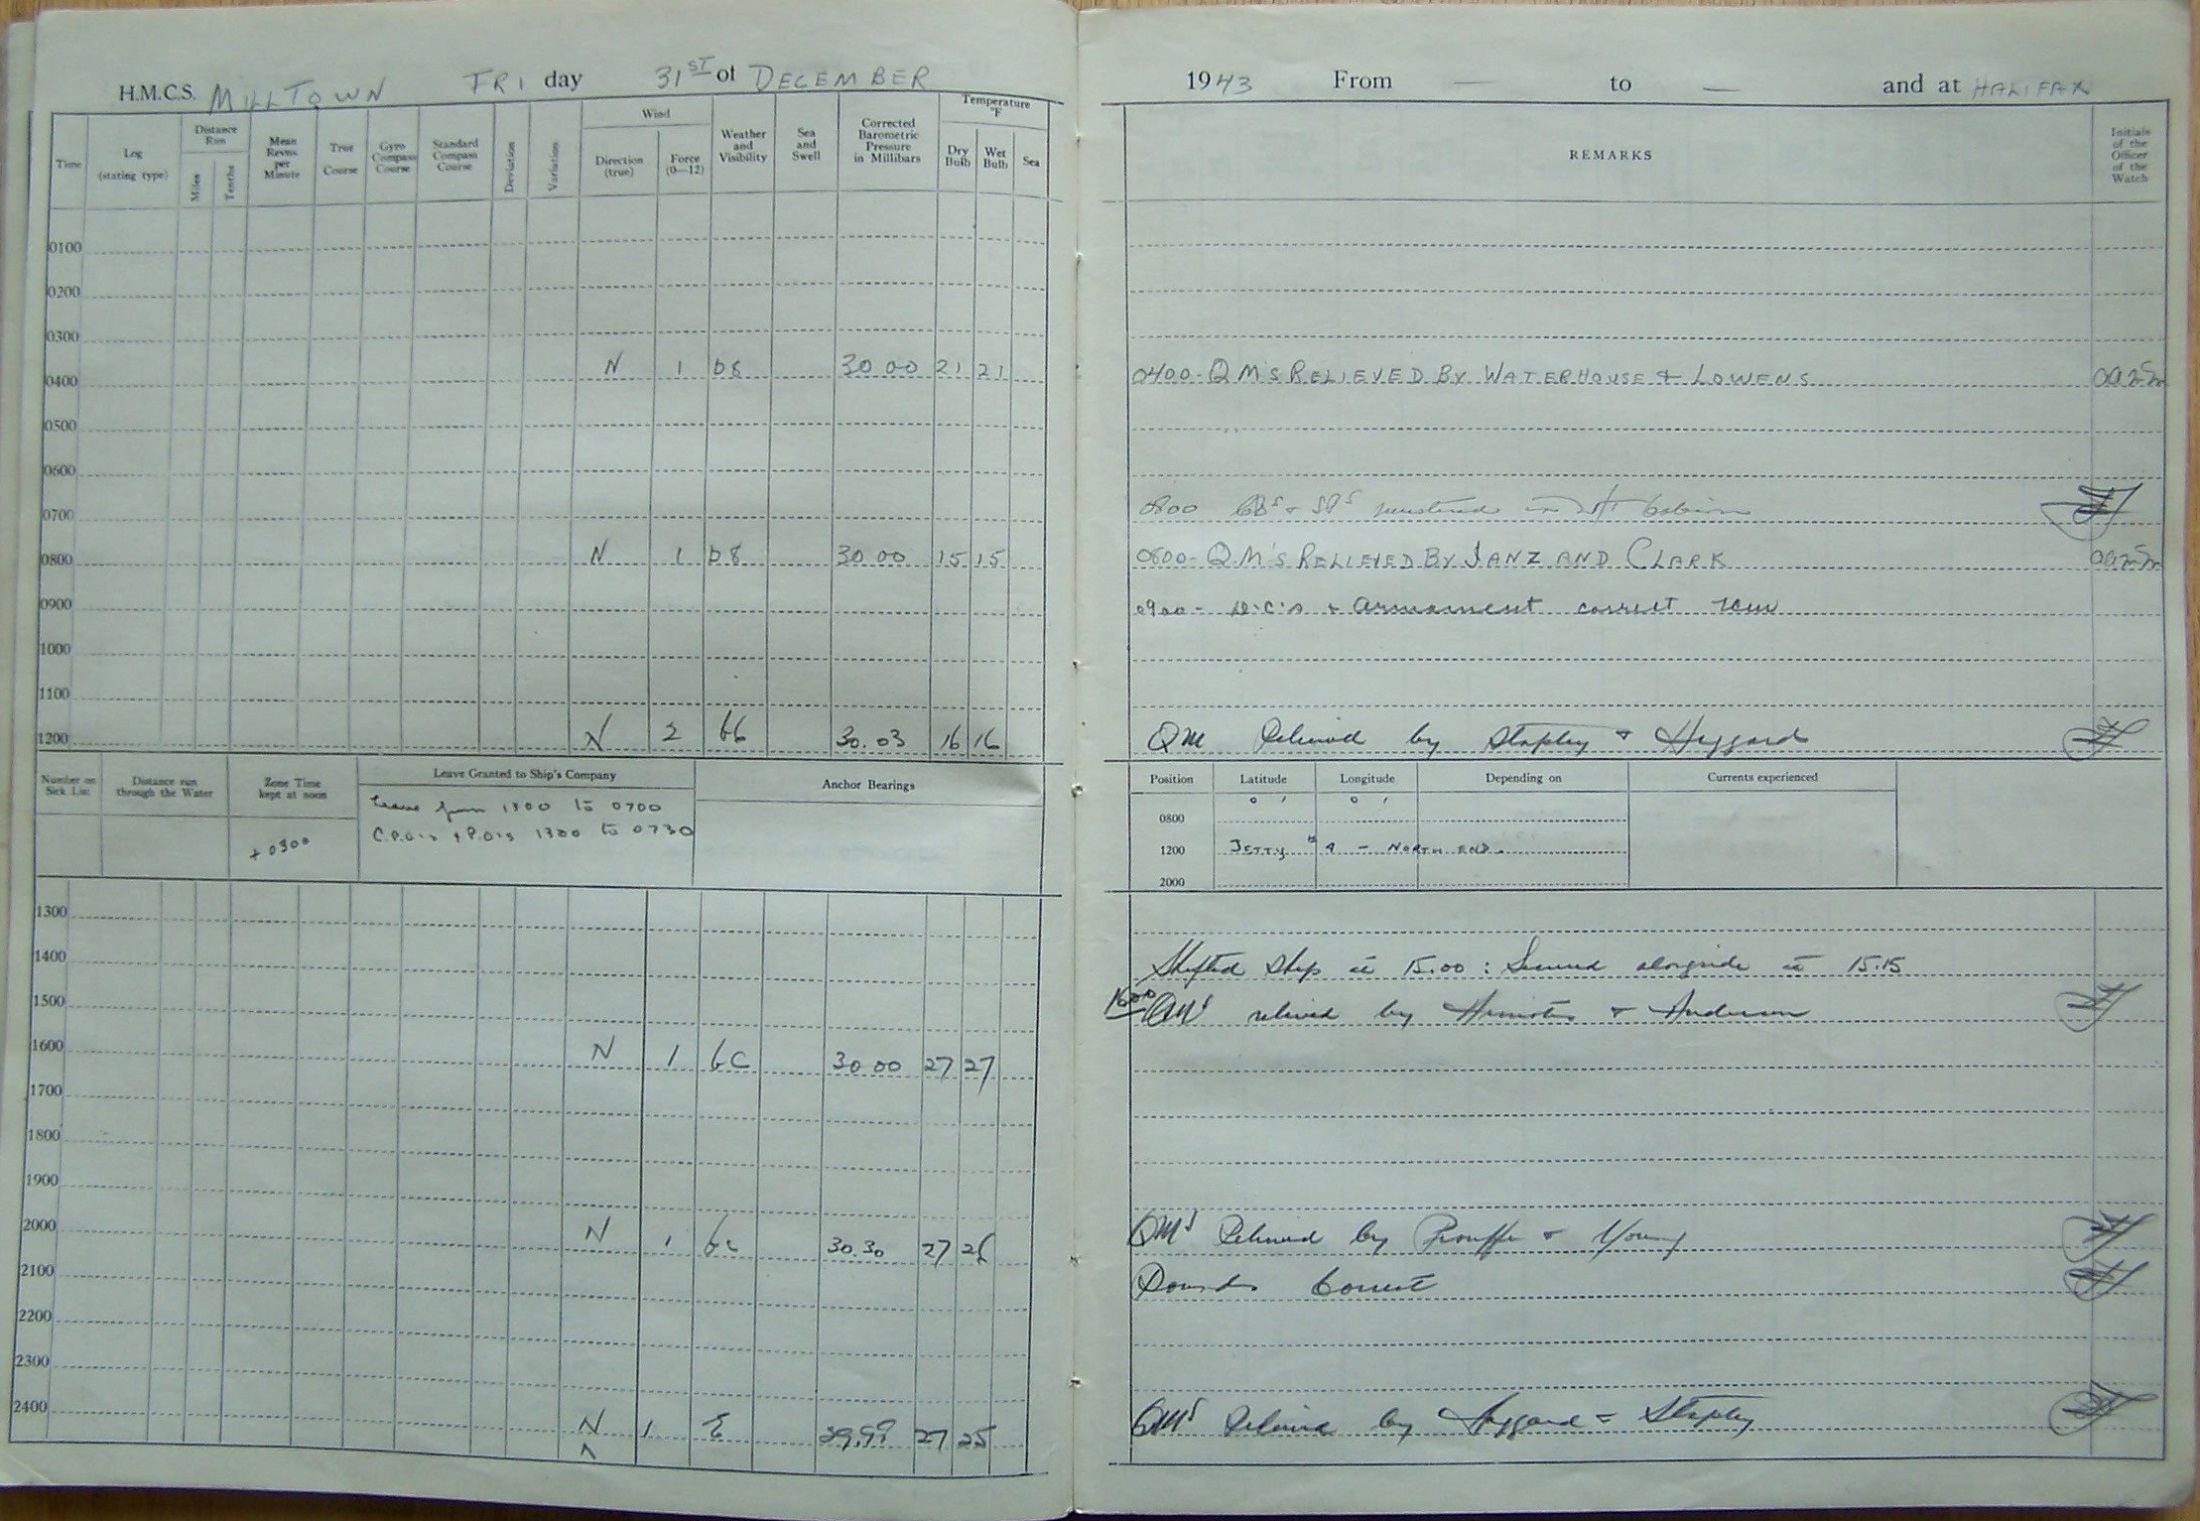 H.M.C.S. MILLTOWN FRI day 31ST of DECEMBER
Time
Log
(stating type)
Distance
Run
Miles
Tenths
Mean
Revns.
per
Minute
True
Course
Gyro
Compass
Course
Standard
Compass
Course
Deviation
Variation
Wind
Direction
(true)
Force
(0—12)
Weather
and
Visibility
Sea
and
Swell
Corrected
Barometric
Pressure
in Millibars
Temperature
°F
Dry
Bulb
Wet
Bulb
Sea
0100
0200
0300
0400 N 1 b8 30 00 21 21
0500
0600
0700
0800 N 1 b8 30 00 15 15
0900
1000
1100
1200 N 2 30.03 16 16
Number on
Sick List
Distance run
through the Water
Zone Time
kept at noon
+0300
Leave Granted to Ship's Company
Leave from 1300 to 0700
C.P.O's & P.O's 1300 to 0730
Anchor Bearings
1300
1400
1500
1600 N 1 bc 30 00 27 27
1700
1800
1900
2000 N 1 bc 30.30 27 26
2100
2200
2300
2400 N 1 29.99 27 25
1943 From — to — and at HALIFAX
REMARKS
Initials
of the
Officer
of the
Watch
0400-QM'S RELIEVED BY WATERHOUSE & LOWENS
0800 CB's & SP's mustered in cabin
0800-Q.M'S RELIEVED BY JANZ AND CLARK
0900- D.C.'s & Armament correct
QM Relieved by Stapley & Heggard
Position Latitude Longitude Depending on Currents experienced
° ′ ° ′
0800
1200 JETTY # 9 - NORTH END.
2000
Shifted Ship at 15.00 : Secured alongside at 15.15
1600 QM's relieved by & Anderson
QM's Relieved by Prouffe & Young
Rounds Correct
QM's Relieved by Heggard & Stapley